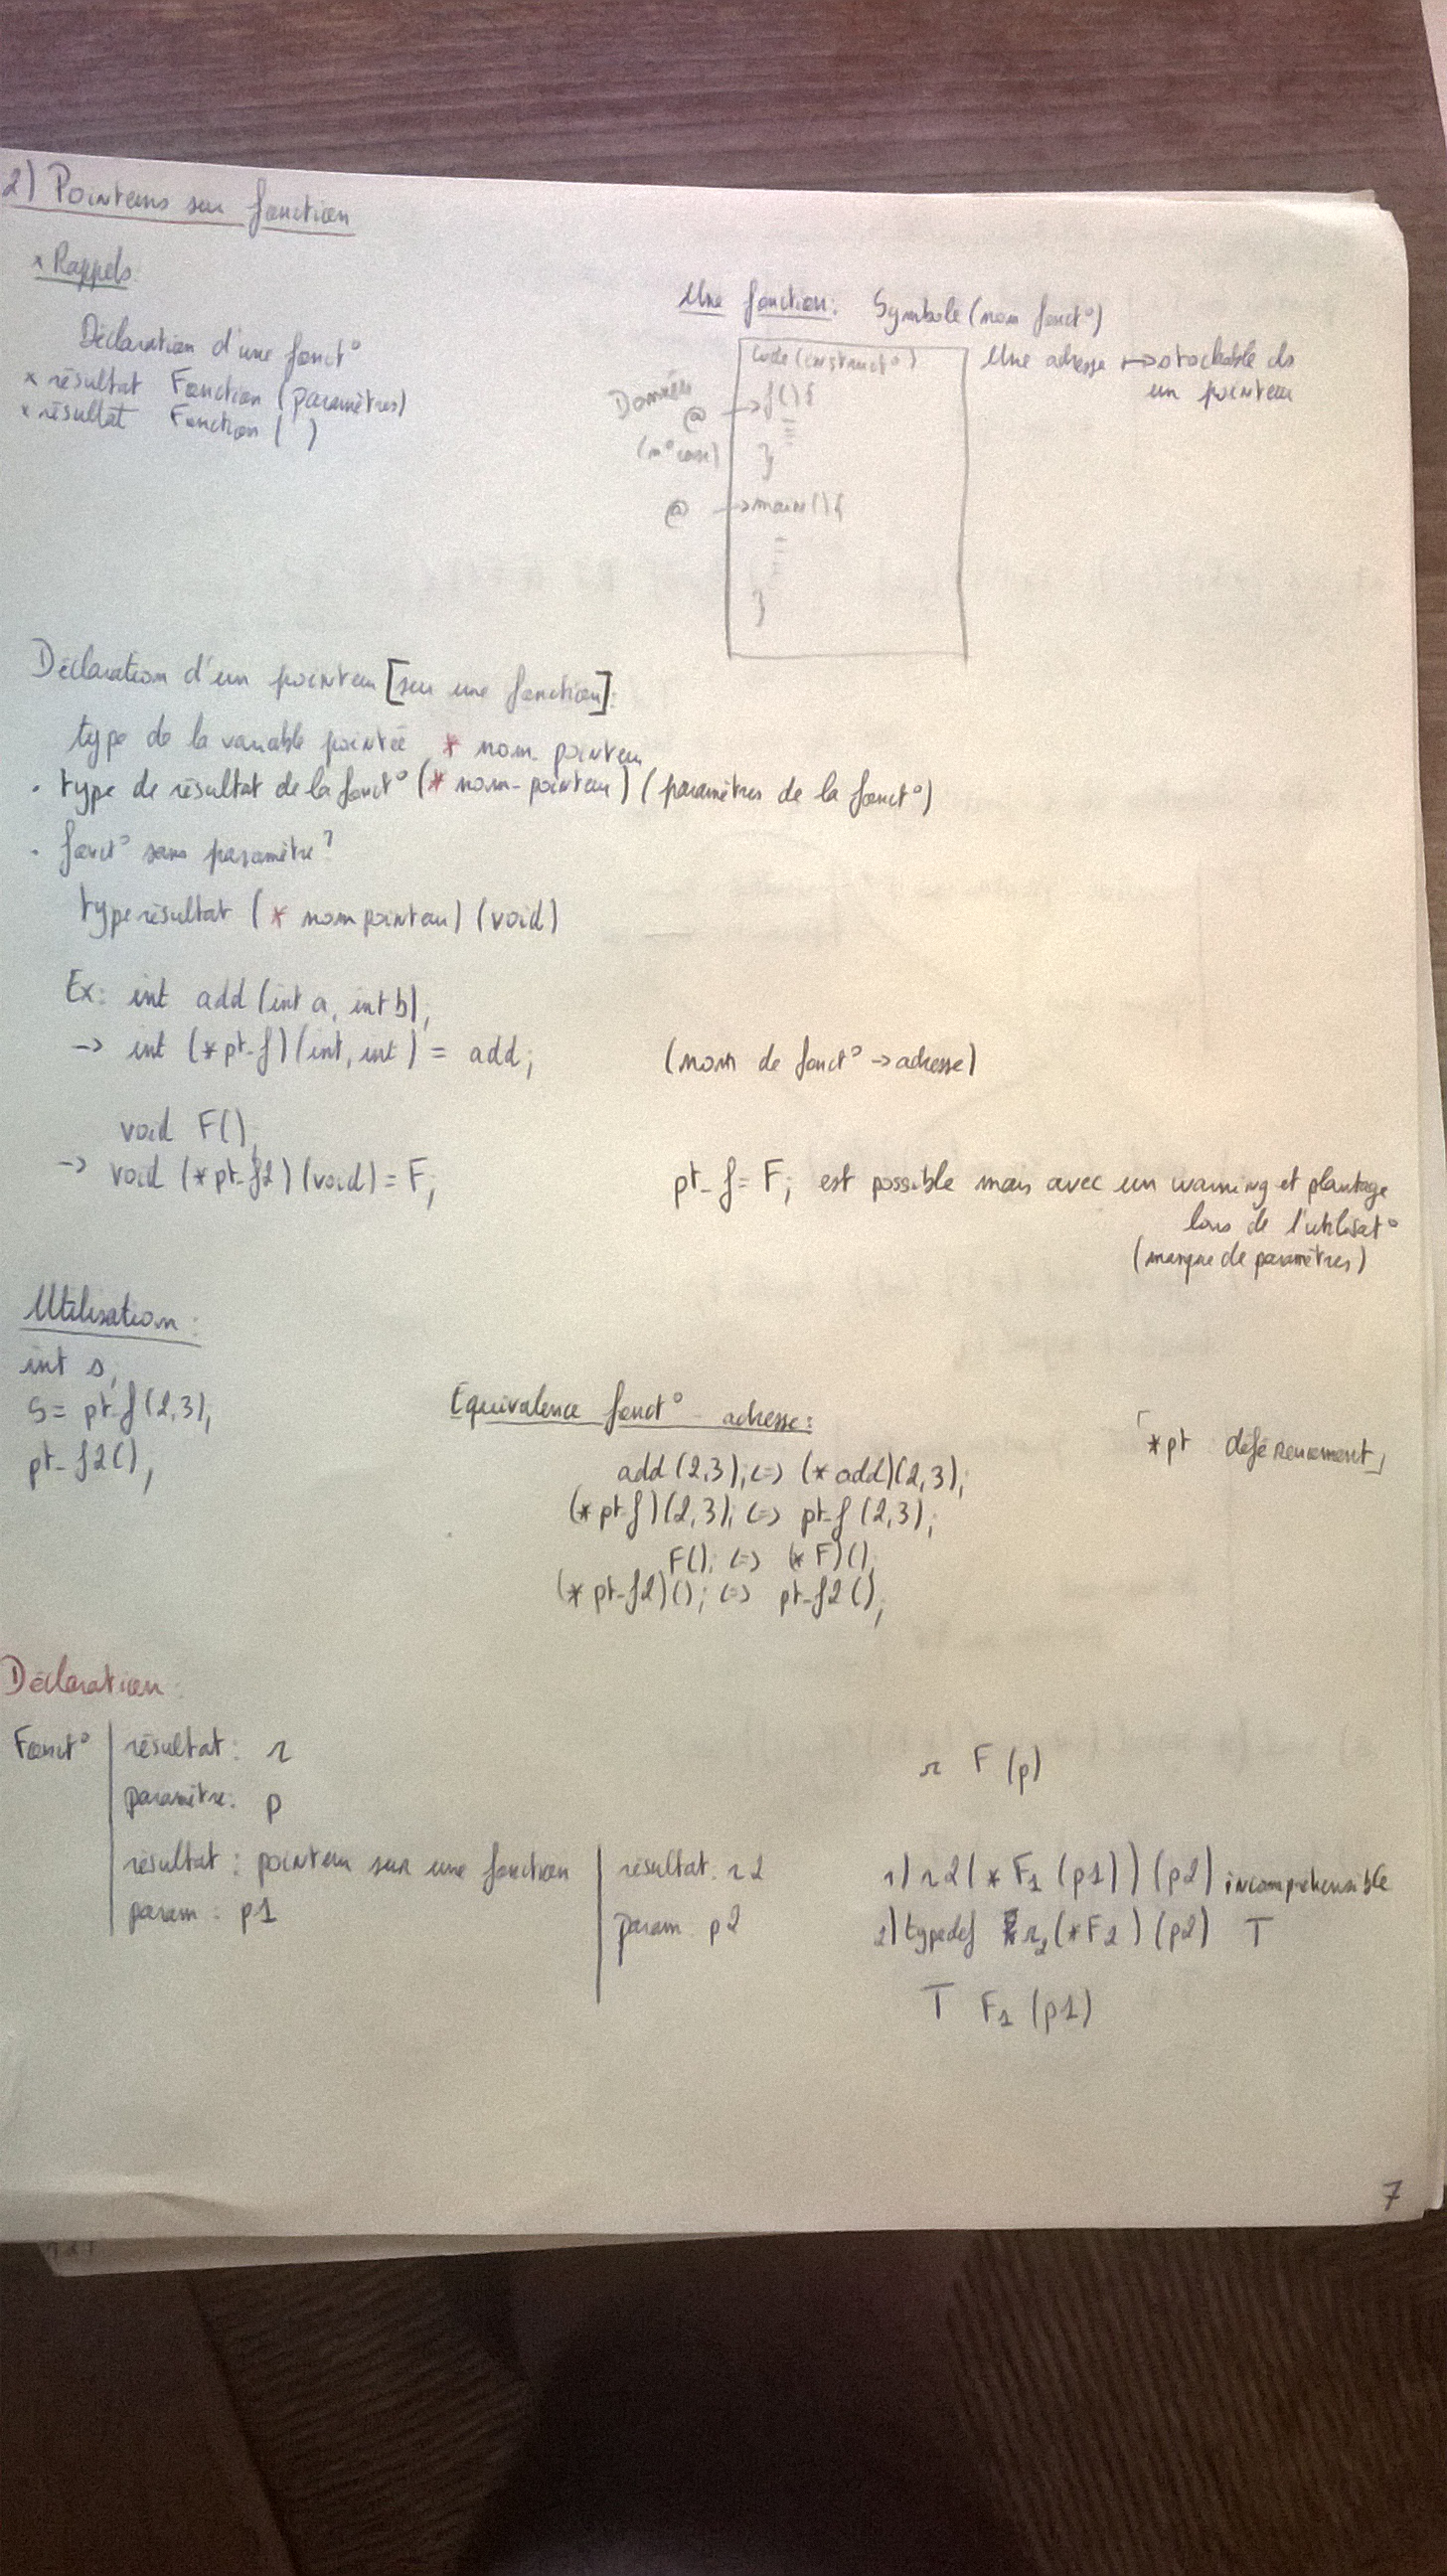 2) Pointeurs sur fonction
* Rappels
Déclaration d'une fonct°
* résultat Fonction (paramètres)
* résultat Fonction ( )
Une fonction: Symbole (nom fonct°)
Une adresse ↦ stockable ds
un pointeur
Code (instruct°)
Données
@ → f(){
(n° case)
}
@ → main(){
}
Déclaration d'un pointeur [sur une fonction]:
type de la variable pointée * nom_pointeur
. type de résultat de la fonct° (* nom_pointeur) (paramètres de la fonct°)
. fonct° sans paramètre?
type résultat (* nom pointeur) (void)
Ex: int add (int a, int b);
→ int (*pt_f)(int, int) = add; (nom de fonct° → adresse)
void F();
→ void (*pt_f2)(void) = F; pt_f = F; est possible mais avec un warning et plantage
lors de l'utilisat°
(manque de paramètres)
Utilisation:
int s;
s = pt_f(2,3);
pt_f2();
Equivalence fonct° - adresse:
add(2,3); <=> (*add)(2,3);
(*pt_f)(2,3); <=> pt_f(2,3);
F(); <=> (*F)();
(*pt_f2)(); <=> pt_f2();
「*pt déférencement」
Déclaration:
Fonct° résultat: r
paramètre: p
r F (p)
résultat: pointeur sur une fonction résultat: r2
param: p1 param p2
1) r2(*F1 (p1)) (p2) incompréhensible
2) typedef r2 (*F2) (p2) T
T F1 (p1)
7